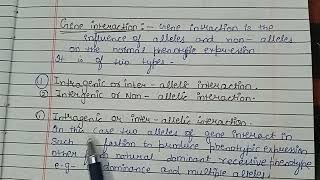 Gene interaction:- Gene intraction is the
influence of alleles and non-alleles
on the normal phenotypic expression
It is of two types -
① Intragenic or inter-allelic interaction.
② Intergenic or Non-allelic interaction.
① Intragenic or inter-allelic interaction.
In this case two alleles of gene interact in
Such fashion to produce phenotypic expression
other natural dominant recessive phenotype
e-g- dominance and multiple alleles